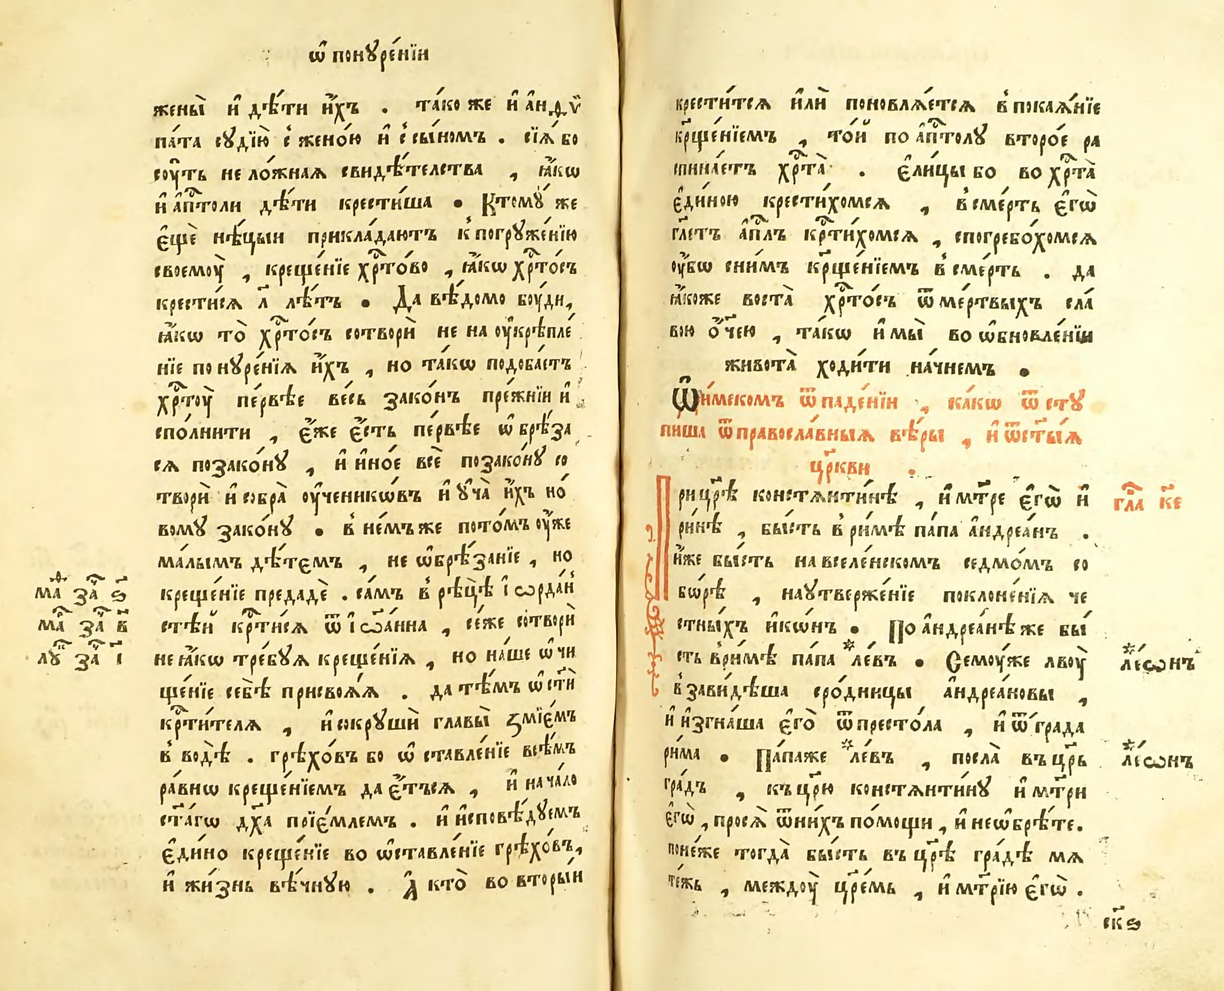 ѿ понꙋре́нїи
жены̀ и҆ дѣ́ти и҆́хъ . та́ко же и҆ а҆нѳѵ̈
па́та сꙋдїю̀ с̾ жено́ю и҆ с̾ сы́номъ . сїѧ́ бо
сꙋ́ть не ло́жнаѧ свидѣ́телства , ꙗ҆́кѡ
и҆ а҆пⷭ҇толи дѣ́ти крести́ша . Ктомꙋ́ же
є҆щѐ нѣ́цыи прикла́даютъ к̾ погрꙋже́нїю
своемꙋ̀ , креще́нїе хрⷭ҇то́во , ꙗ҆́кѡ хрⷭ҇то́съ
крести́сѧ л҃ лѣ́тъ . Да вѣ́домо бꙋ́ди,
ꙗ҆́кѡ то̀ хрⷭ҇то́съ сотворѝ не на ᲂу҆крѣпле́
нїе понꙋре́нїѧ и҆́хъ , но та́кѡ подоба́стъ
хрⷭ҇тꙋ̀ пе́рвѣе ве́сь зако́нъ пре́жнїи и҆
спо́лнити , є҆́же є҆́сть пе́рвѣе ѡ҆брѣ́за
сѧ позако́нꙋ , и҆ и҆но́е всѐ позако́нꙋ со
творѝ и҆ собра̀ ᲂу҆ченикѡ́въ и҆ ᲂу҆ча̀ и҆́хъ но́
вомꙋ зако́нꙋ . в̾ не́мъже пото́мъ ᲂу҆́же
ма́лымъ дѣ́темъ , не ѡ҆брѣ́занїе , но
креще́нїе предадѐ . са́мъ в̾ рѣцѣ̀ і҆ѻрда́н
стѣ́й крⷭ҇ти́сѧ ѿ і҆ѡа́нна , се́же сотворѝ
не ꙗ҆́кѡ тре́бꙋѧ креще́нїѧ , но на́ше ѡ҆чи
ще́нїе себѣ̀ присвоѧ́ѧ . да тѣ́мъ ѡ҆ст҃и́тъ
крⷭ҇ти́телѧ , и҆ сокрꙋшѝ главы̀ ѕмїє́мъ
в̾ водѣ̀ . грѣхо́въ бо ѡ҆ставле́нїе всѣ́мъ
ра́внѡ креще́нїемъ дае́тъсѧ , и҆ нача́ло
ст҃а́гѡ дх҃а прїе́млемъ . и҆ и҆сповѣ́дꙋемъ
є҆ди́но креще́нїе во ѡ҆ставле́нїе грѣхо́въ,
и҆ жи́знь вѣ́чнꙋю . А҆ кто̀ во вторы́и
мⷴ҇а заⷱ҇ ѕ҃
маⷴ҇ заⷱ҇ в҃
лꙋⷦ҇ заⷱ҇ і҃
крести́тсѧ и҆лѝ поновлѧ́етсѧ в̾ покаѧ́нїе
крⷭ҇ще́нїемъ , то́й по а҆пⷭ҇толꙋ второ́е ра
спина́етъ хрⷭ҇та̀ . є҆ли́цы бо во хрⷭ҇та̀
є҆ди́ною крести́хомсѧ , в̾ сме́рть є҆гѡ̀
гл҃етъ а҆пⷭ҇лъ крⷭ҇ти́хомсѧ , спогребо́хомсѧ
ᲂу҆́бѡ сни́мъ крⷭ҇ще́нїемъ в̾ сме́рть . да
ꙗ҆́коже воста̀ хрⷭ҇то́съ ѿ ме́ртвыхъ сла́
вою ѻ҆́ч҃ею , та́кѡ и҆ мы̀ во ѡ҆бновле́нїи
живота̀ ходи́ти на́чнемъ .
Ѿ ри́мскомъ ѿпаде́нїи , ка́кѡ ѿстꙋ
пиша ѿ правосла́вныѧ вѣ́ры , и҆ ѿ ст҃ы́ѧ
цр҃кви .
При цр҃ѣ̀ констѧнти́нѣ , и҆ мт҃ре є҆гѡ̀ и҆
ри́нѣ , бы́сть в̾ ри́мѣ па́па а҆ндреа́нъ .
и҆́же бы́сть на вселе́нскомъ седмо́мъ со
бо́рѣ , на ᲂу҆твержє́нїе поклоне́нїѧ че
стны́хъ и҆ко́нъ . По а҆ндреа́нѣ же бы́
сть в̾ ри́мѣ па́па ле́въ . Семꙋ́же лвꙋ̀
в̾зави́дѣша сро́дницы а҆ндреа́новы ,
и҆ и҆згна́ша є҆го̀ ѿ престо́ла , и҆ ѿ гра́да
ри́ма . Па́паже ле́въ , посла̀ въ цр҃ь
гра́дъ , къ цр҃ю констѧнти́нꙋ и҆ мт҃ри
є҆гѡ̀ , просѧ̀ ѿ ни́хъ по́мощи , и҆ не ѡ҆брѣ́те.
поне́же тогда̀ бы́сть въ цр҃ѣ гра́дѣ мѧ
те́жь , междꙋ̀ цр҃е́мь , и҆ мт҃рїю є҆гѡ̀ .
гла҃ к҃е
ле́ѡнъ
ле́ѡнъ
сk҃ѕ